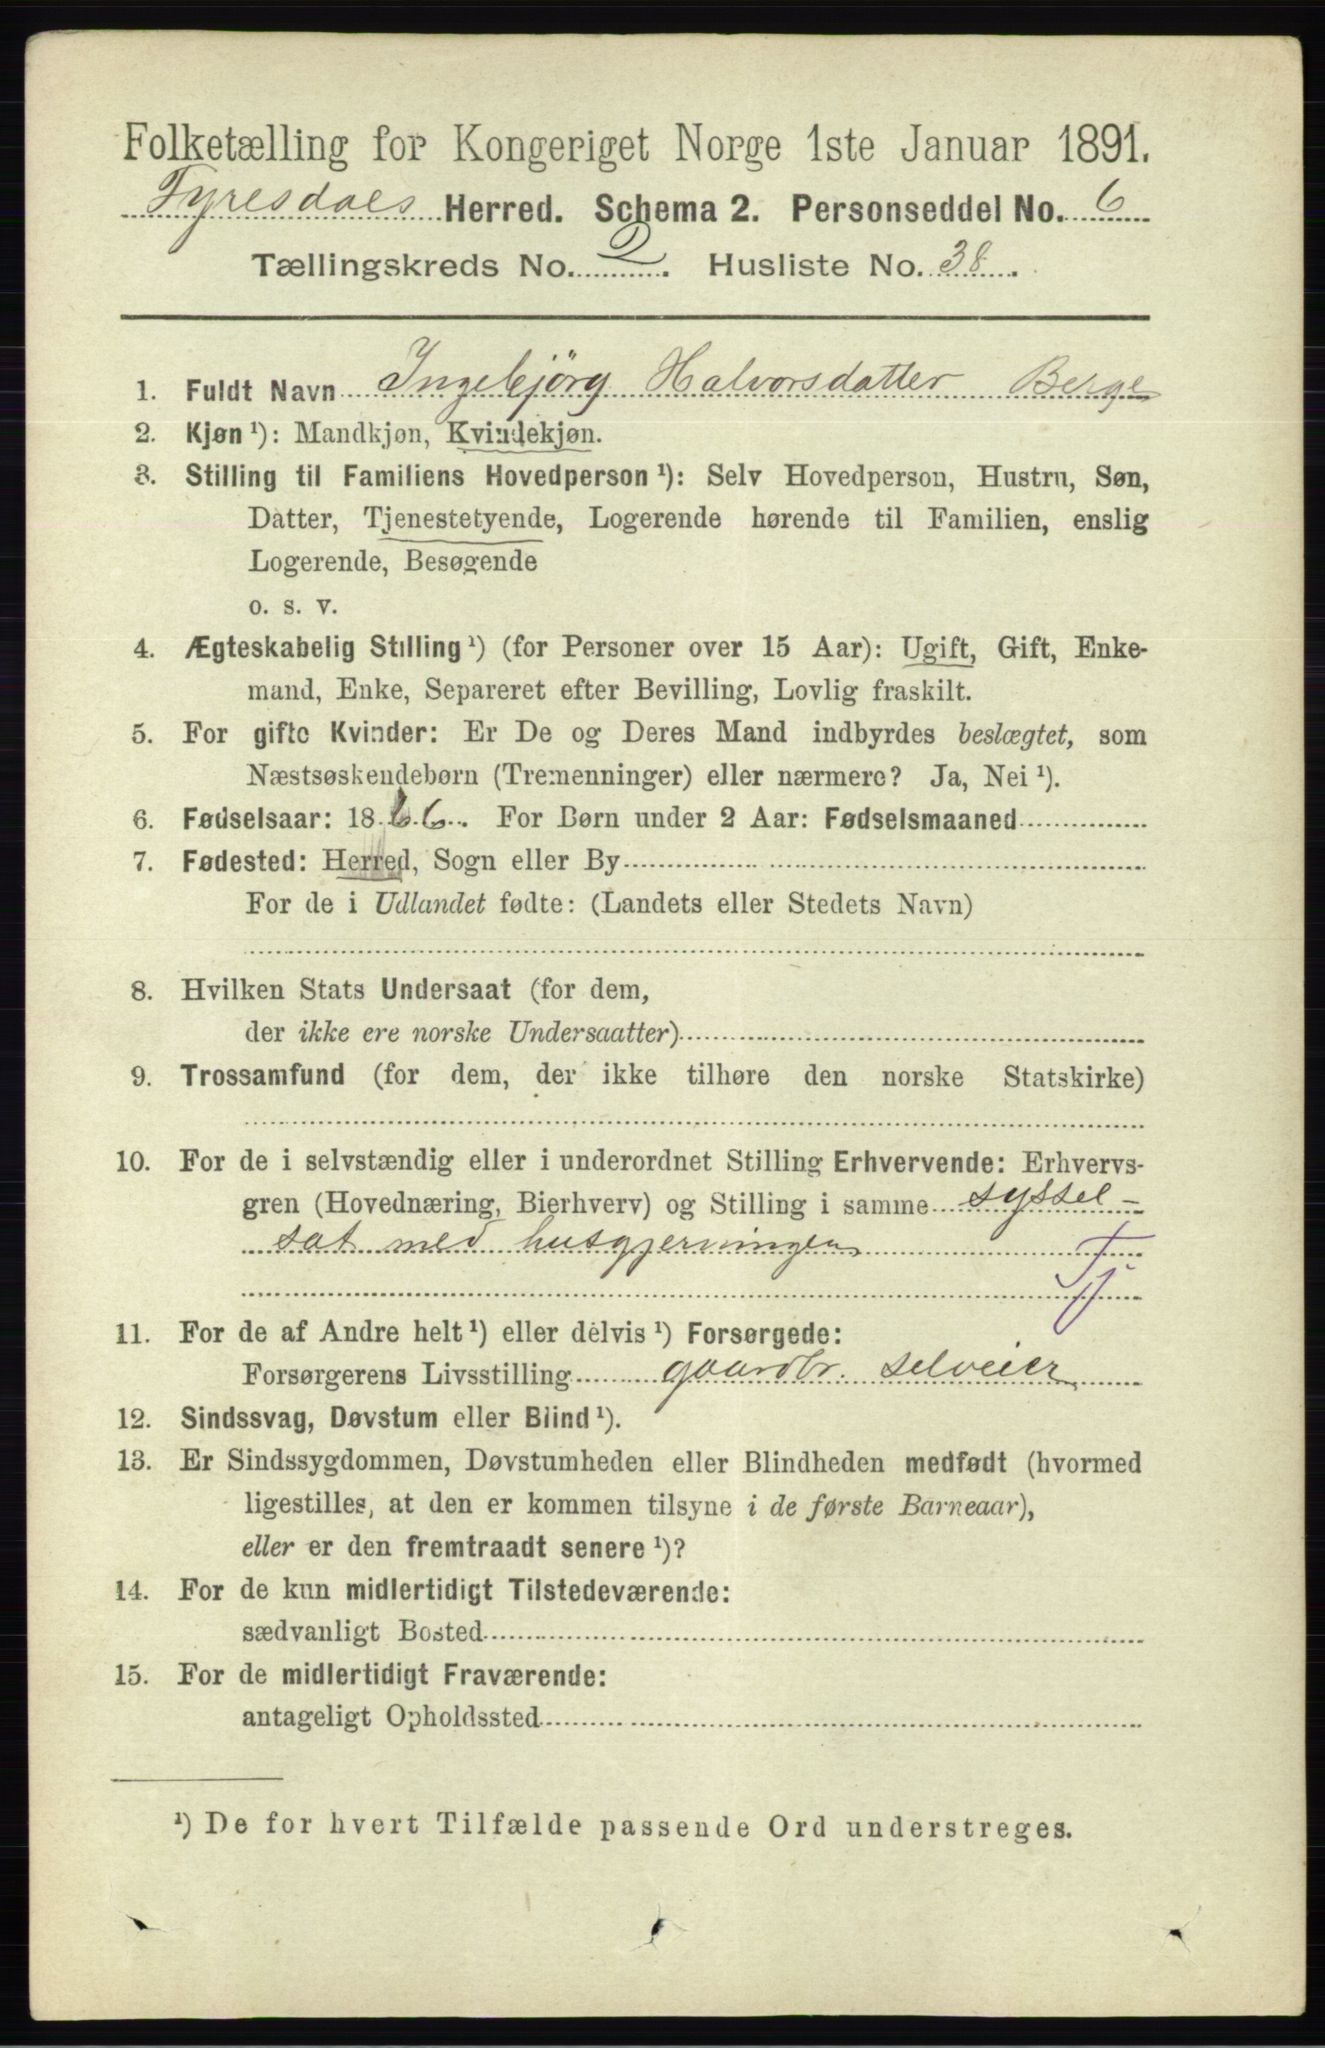 Folketælling for Kongeriget Norge 1ste Januar 1891.
Fyresdals Herred. Schema 2. Personseddel No. 6
Tællingskreds No. 2. Husliste No. 38.
1. Fuldt Navn Ingebjörg Halvorsdatter Berge
2. Kjøn ¹): Mandkjøn, Kvindekjøn.
3. Stilling til Familiens Hovedperson ¹): Selv Hovedperson, Hustru, Søn,
Datter, Tjenestetyende, Logerende hørende til Familien, enslig
Logerende, Besøgende
o. s. v.
4. Ægteskabelig Stilling ¹) (for Personer over 15 Aar): Ugift, Gift, Enke-
mand, Enke, Separeret efter Bevilling, Lovlig fraskilt.
5. For gifte Kvinder: Er De og Deres Mand indbyrdes beslægtet, som
Næstsøskendebørn (Tremenninger) eller nærmere? Ja, Nei ¹).
6. Fødselsaar: 1866. For Børn under 2 Aar: Fødselsmaaned
7. Fødested: Herred, Sogn eller By
For de i Udlandet fødte: (Landets eller Stedets Navn)
8. Hvilken Stats Undersaat (for dem,
der ikke ere norske Undersaatter)
9. Trossamfund (for dem, der ikke tilhøre den norske Statskirke)
10. For de i selvstændig eller i underordnet Stilling Erhvervende: Erhvervs-
gren (Hovednæring, Bierhverv) og Stilling i samme syssel-
sat med husgjerningen
Tj
11. For de af Andre helt ¹) eller delvis ¹) Forsørgede:
Forsørgerens Livsstilling gaardbr. selveier
12. Sindssvag, Døvstum eller Blind ¹).
13. Er Sindssygdommen, Døvstumheden eller Blindheden medfødt (hvormed
ligestilles, at den er kommen tilsyne i de første Barneaar),
eller er den fremtraadt senere ¹)?
14. For de kun midlertidigt Tilstedeværende:
sædvanligt Bosted
15. For de midlertidigt Fraværende:
antageligt Opholdssted
¹) De for hvert Tilfælde passende Ord understreges.